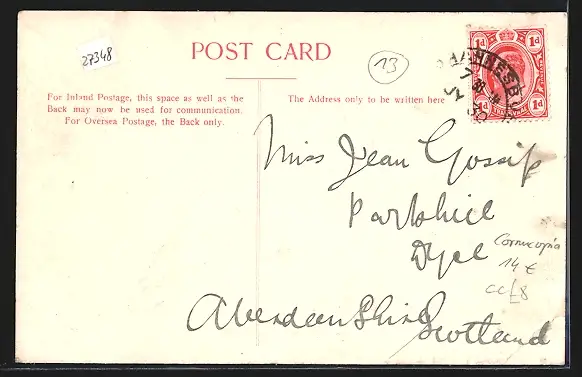 27348
POST CARD
13
For Inland Postage, this space as well as the
Back may now be used for communication.
For Oversea Postage, the Back only.
The Address only to be written here
1d 1d
1d 1d
HANNESB
Miss Jean Gossip
Parkhill
Dyce
Aberdeenshire
Scotland
Cornucopia
14 €